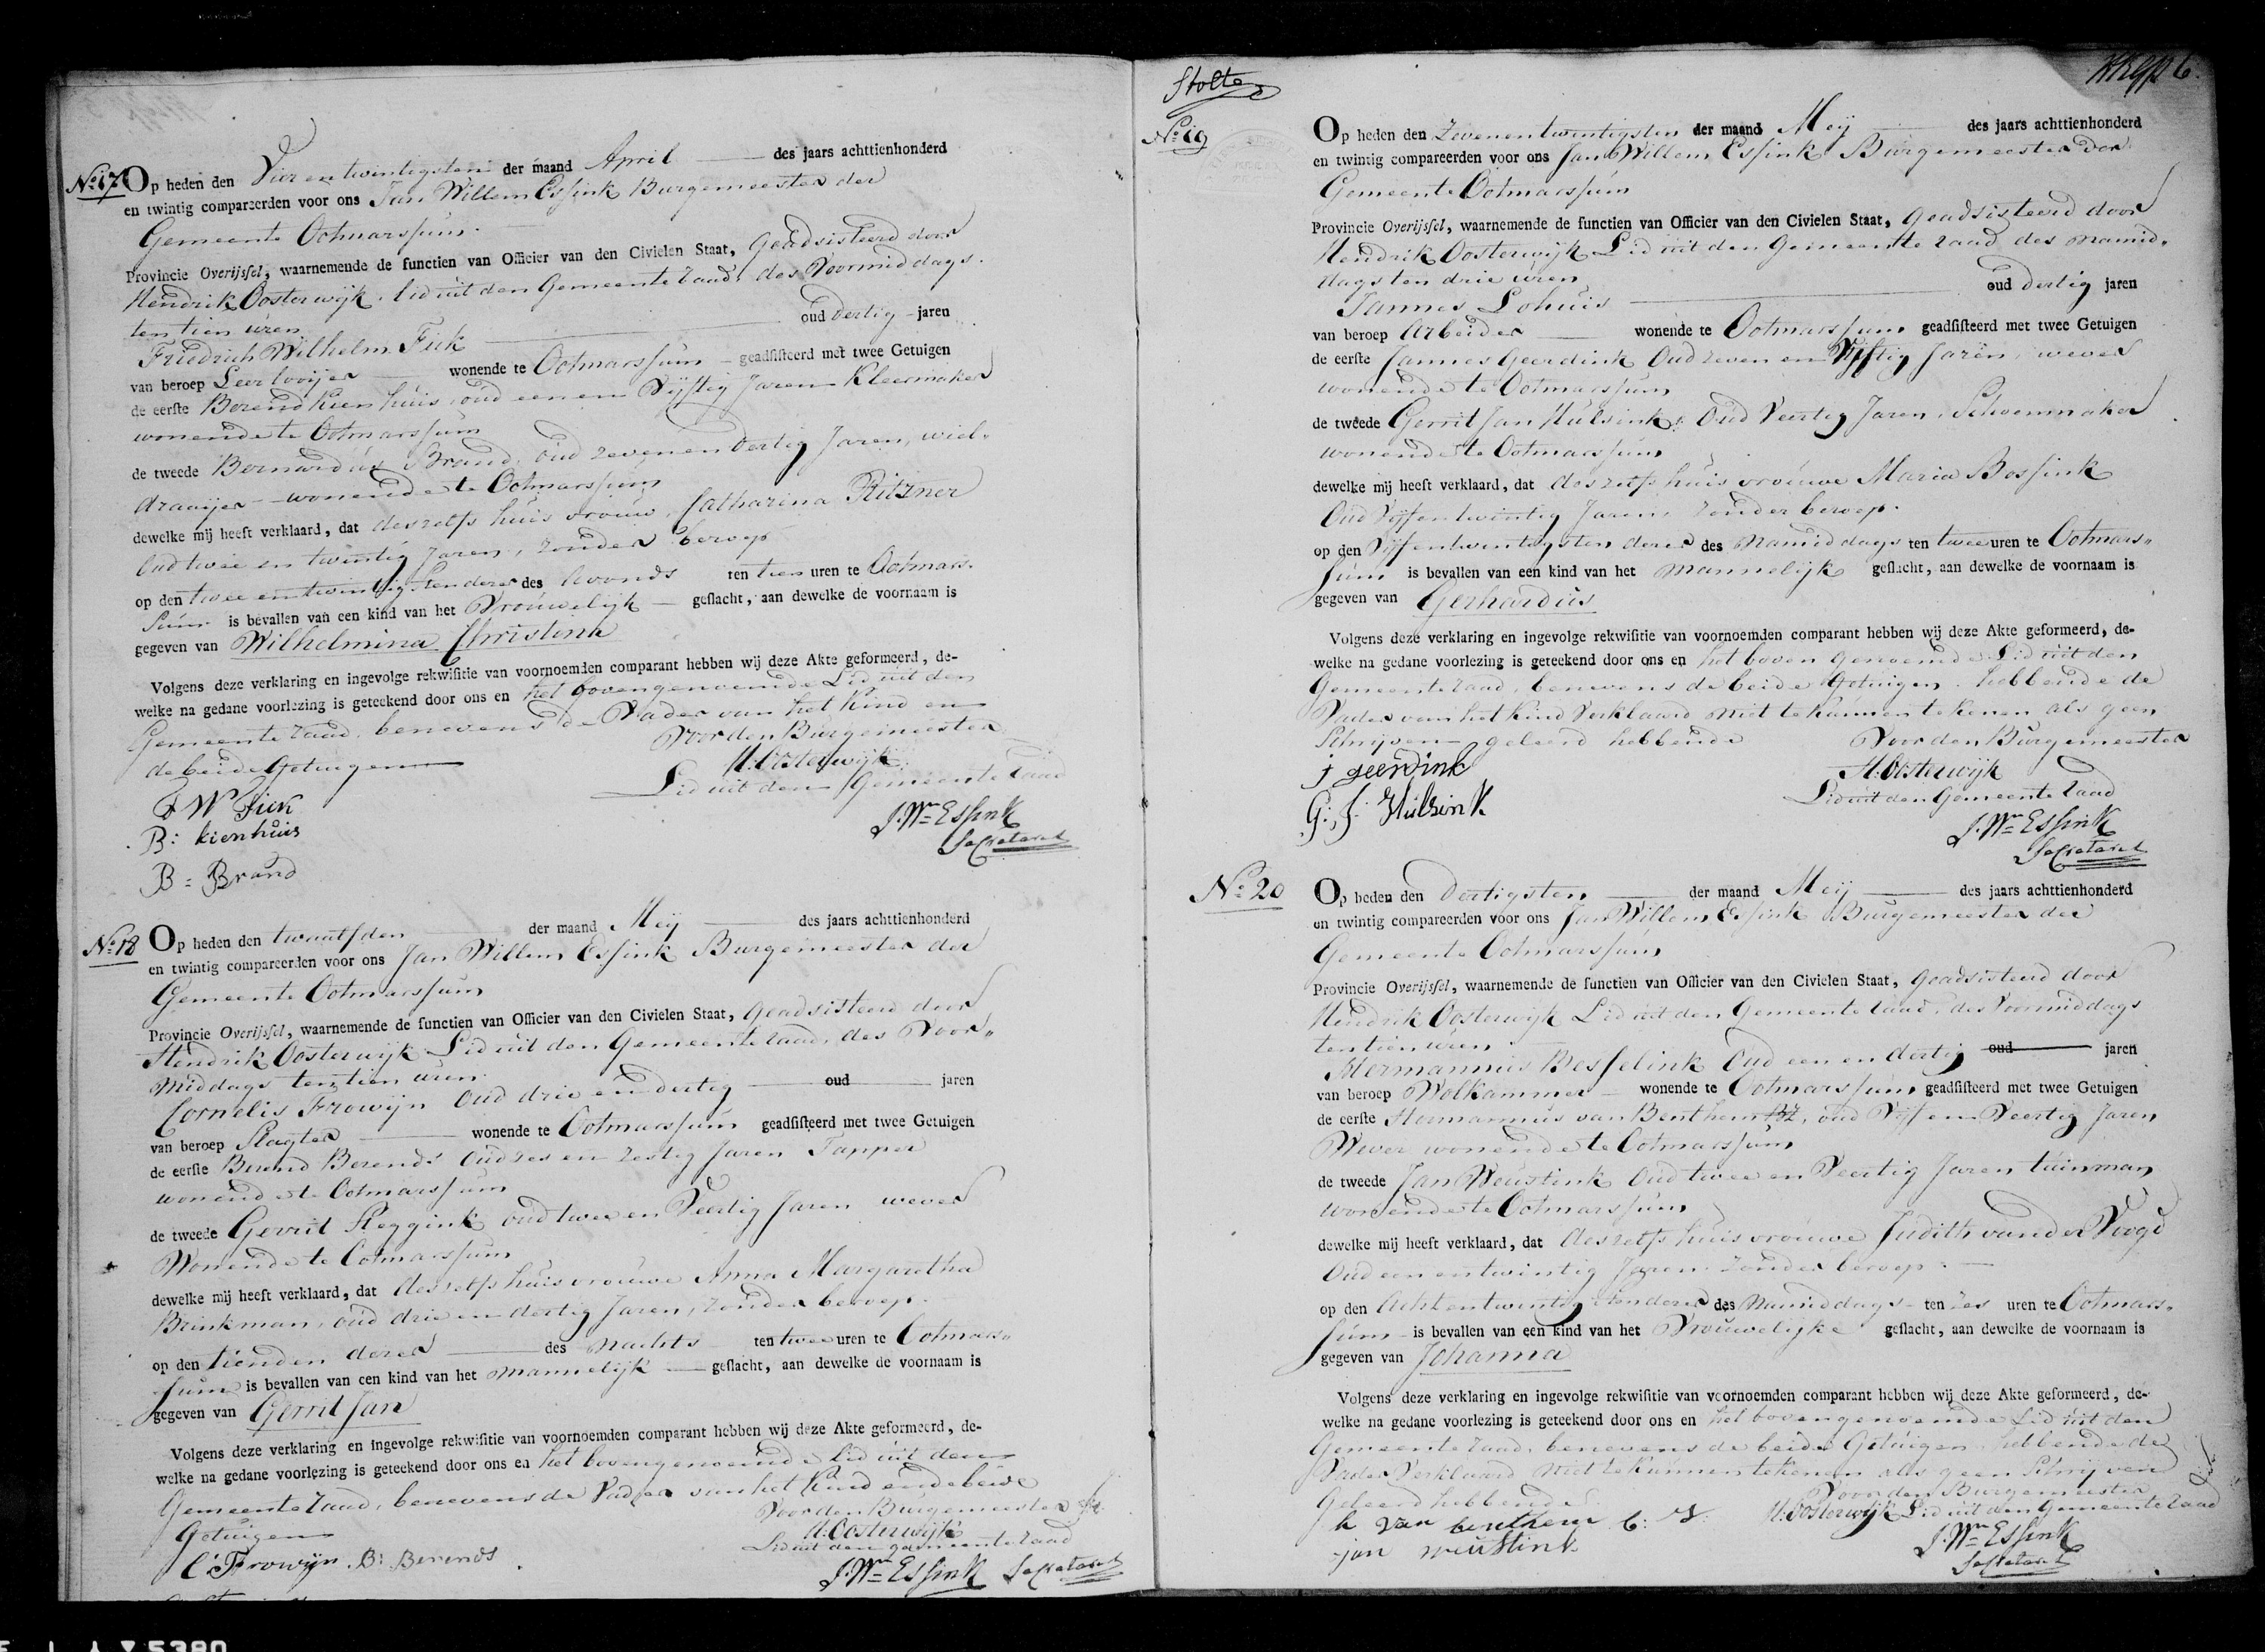 No. 17 Op heden den Vier en twintigsten der maand April des jaars achttienhonderd
en twintig compareerden voor ons Jan Willem Essink Burgemeester der
Gemeente Ootmarssum
Provincie Overijssel, waarnemende de functien van Officier van den Civielen Staat, geadsisteerd door
Hendrik Oosterwijk, Lid uit den Gemeente raad, des Voormiddags
ten tien uren
Friedrich Wilhelm Fiek oud dertig jaren
van beroep Leerlooijer wonende te Ootmarssum geadsisteerd met twee Getuigen
de eerste Berend Kienhuis, oud een en Vijftig Jaren Kleermaker
wonende te Ootmarssum
de tweede Bernardus Brand, oud zeven en dertig Jaren, wiel-
draaijer wonende te Ootmarssum
dewelke mij heeft verklaard, dat deszelfs huis vrouw, Catharina Ritzner
Oud twee en twintig Jaren, zonder beroep
op den twee en twintigsten dezer des Avonds ten tien uren te Ootmars-
sum is bevallen van een kind van het Vrouwelijk geslacht, aan dewelke de voornaam is
gegeven van Wilhelmina Christina
Volgens deze verklaring en ingevolge rekwisitie van voornoemden comparant hebben wij deze Akte geformeerd, de-
welke na gedane voorlezing is geteekend door ons en het bovengenoemde Lid uit den
Gemeente raad, benevens de Vader van het Kind en
de beide Getuigen Voor den Burgemeester
H. Oosterwijk
Lid uit den Gemeente raad
F W Fiek
B: kienhuis
J. Wm Essink
Secretaris
B: Brand
No. 18 Op heden den twaalfden der maand Meij des jaars achttienhonderd
en twintig compareerden voor ons Jan Willem Essink Burgemeester der
Gemeente Ootmarssum
Provincie Overijssel, waarnemende de functien van Officier van den Civielen Staat, geadsisteerd door
Hendrik Oosterwijk Lid uit den Gemeente raad, des Voor-
middags ten tien uren
Cornelis Frowijn Oud drie en dertig oud jaren
van beroep Slagter wonende te Ootmarssum geadsisteerd met twee Getuigen
de eerste Berend Berends Oud zes en zestig Jaren Tapper
wonende te Ootmarssum
de tweede Gerrit Reggink oud twee en Veertig Jaren wever
Wonende te Ootmarssum
dewelke mij heeft verklaard, dat deszelfs huis vrouwe Anna Margaretha
Brinkman, oud drie en dertig Jaren, zonder beroep
op den tienden dezer des nachts ten twee uren te Ootmars-
sum is bevallen van een kind van het mannelijk geslacht, aan dewelke de voornaam is
gegeven van Gerrit Jan
Volgens deze verklaring en ingevolge rekwisitie van voornoemden comparant hebben wij deze Akte geformeerd, de-
welke na gedane voorlezing is geteekend door ons en het bovengenoemde Lid uit den
Gemeente raad, benevens de Vader van het Kind en de beide
Getuigen Voor den Burgemeester
H. Oosterwijk
Lid uit den gemeente raad
C: Frowijn B: Berends
J. Wm Essink Secretaris
Stolte
No. 19 Op heden den Zeven en twintigsten der maand Meij des jaars achttienhonderd
en twintig compareerden voor ons Jan Willem Essink Burgemeester der
Gemeente Ootmarssum
Provincie Overijssel, waarnemende de functien van Officier van den Civielen Staat, geadsisteerd door
Hendrik Oosterwijk Lid uit den Gemeente raad, des Namid-
dags ten drie uren
Jannes Lohuis oud dertig jaren
van beroep Arbeider wonende te Ootmarssum geadsisteerd met twee Getuigen
de eerste Jannes Geerdink Oud zeven en Vijftig Jaren, wever
wonende te Ootmarssum
de tweede Gerrit Jan Hulsink, Oud Veertig Jaren, Schoenmaker
wonende te Ootmarssum
dewelke mij heeft verklaard, dat deszelfs huis vrouwe Maria Bossink
Oud Vijf en twintig Jaren, zonder beroep
op den Vijf en twintigsten dezer des Namiddags ten twee uren te Ootmars-
sum is bevallen van een kind van het mannelijk geslacht, aan dewelke de voornaam is
gegeven van Gerhardus
Volgens deze verklaring en ingevolge rekwisitie van voornoemden comparant hebben wij deze Akte geformeerd, de-
welke na gedane voorlezing is geteekend door ons en het boven genoemde Lid uit den
Gemeente raad, benevens de beide Getuigen, hebbende de
Vader van het kind Verklaard niet te kunnen tekenen als geen
Schrijven geleerd hebbende Voor den Burgemeester
j geerdink H. Oosterwijk
Lid uit den Gemeente raad
G: J: Hulsink
J. Wm Essink
Secretaris
No. 20 Op heden den dertigsten der maand Meij des jaars achttienhonderd
en twintig compareerden voor ons Jan Willem Essink Burgemeester der
Gemeente Ootmarssum
Provincie Overijssel, waarnemende de functien van Officier van den Civielen Staat, geadsisteerd door
Hendrik Oosterwijk Lid uit den Gemeente raad, des Voormiddags
ten tien uren
Hermannus Besselink Oud een en dertig oud jaren
van beroep Wolkammer wonende te Ootmarssum geadsisteerd met twee Getuigen
de eerste Hermannus van Benthem BZ, oud Vijf en Veertig Jaren
Wever wonende te Ootmarssum
de tweede Jan Weustink Oud twee en Veertig Jaren tuinman
wonende te Ootmarssum
dewelke mij heeft verklaard, dat deszelfs huis vrouwe Judith van der Voogd
Oud een en twintig Jaren, zonder beroep
op den Acht en twintigsten dezer des Namiddags ten zes uren te Ootmars-
sum is bevallen van een kind van het Vrouwelijke geslacht, aan dewelke de voornaam is
gegeven van Johanna
Volgens deze verklaring en ingevolge rekwisitie van voornoemden comparant hebben wij deze Akte geformeerd, de-
welke na gedane voorlezing is geteekend door ons en het bovengenoemde Lid uit den
Gemeente raad, benevens de beide Getuigen hebbende de
Vader Verklaard niet te kunnen tekenen als geen Schrijven
Geleerd hebbende Voor den Burgemeester
h van benthem b: z: H. Oosterwijk Lid uit den Gemeente raad
jan weustink
J. Wm Essink
Secretaris
5380